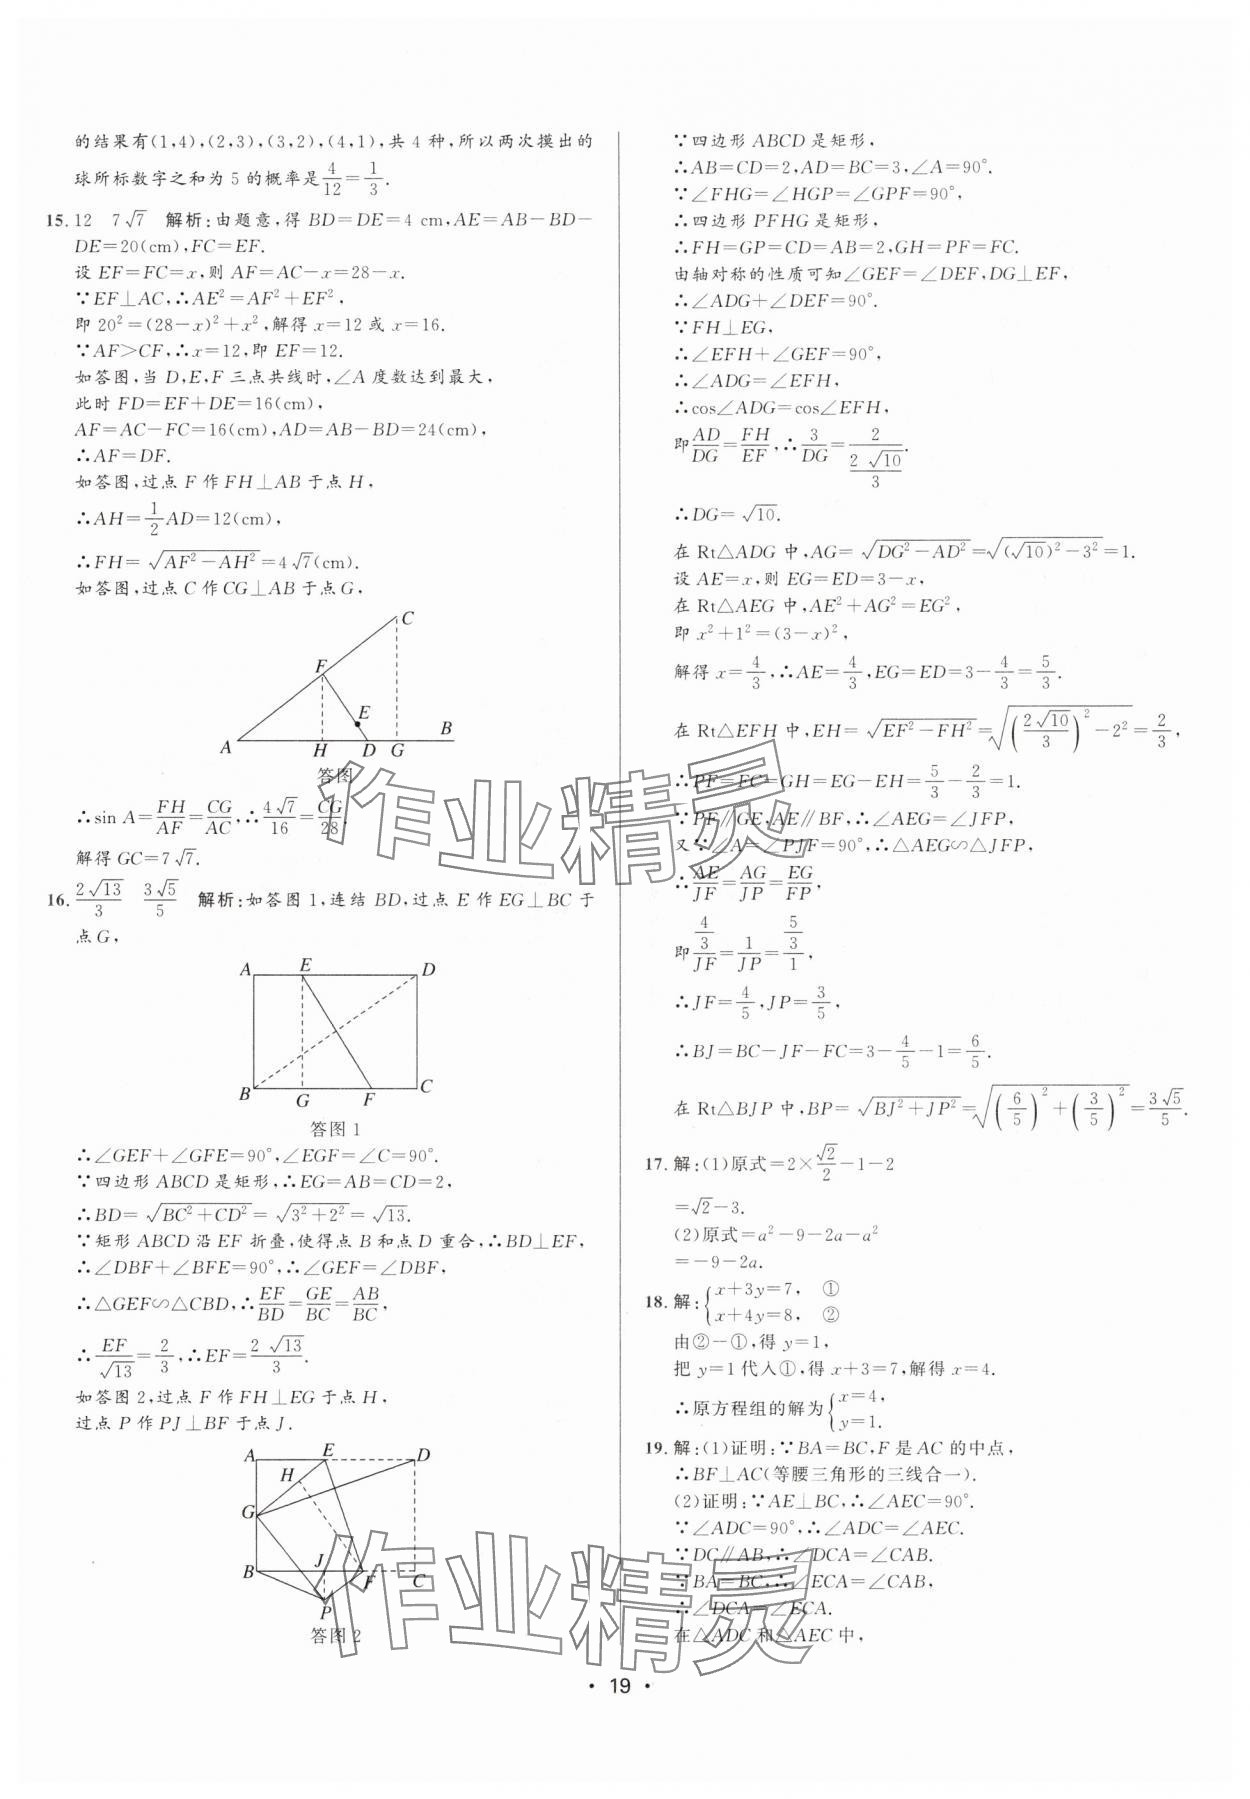 的结果有(1,4),(2,3),(3,2),(4,1),共 4 种,所以两次摸出的
球所标数字之和为 5 的概率是4/12=1/3.
15. 12 7√7 解析:由题意,得 BD=DE=4 cm,AE=AB-BD-
DE=20(cm),FC=EF.
设 EF=FC=x,则 AF=AC-x=28-x.
∵EF⊥AC,∴AE²=AF²+EF²,
即 20²=(28-x)²+x²,解得 x=12 或 x=16.
∵AF>CF,∴x=12,即 EF=12.
如答图,当 D,E,F 三点共线时,∠A 度数达到最大,
此时 FD=EF+DE=16(cm),
AF=AC-FC=16(cm),AD=AB-BD=24(cm),
∴AF=DF.
如答图,过点 F 作 FH⊥AB 于点 H,
∴AH=1/2AD=12(cm),
∴FH=√(AF²-AH²)=4√7(cm).
如答图,过点 C 作 CG⊥AB 于点 G,
C
F
E
A H D G B
答图
∴sin A=FH/AF=CG/AC,∴4√7/16=CG/28.
解得 GC=7√7.
16. 2√13/3 3√5/5 解析:如答图 1,连结 BD,过点 E 作 EG⊥BC 于
点 G,
A E D
B G F C
答图 1
∴∠GEF+∠GFE=90°,∠EGF=∠C=90°.
∵四边形 ABCD 是矩形,∴EG=AB=CD=2,
∴BD=√(BC²+CD²)=√(3²+2²)=√13.
∵矩形 ABCD 沿 EF 折叠,使得点 B 和点 D 重合,∴BD⊥EF,
∴∠DBF+∠BFE=90°,∴∠GEF=∠DBF,
∴△GEF∽△CBD,∴EF/BD=GE/BC=AB/BC,
∴EF/√13=2/3,∴EF=2√13/3.
如答图 2,过点 F 作 FH⊥EG 于点 H,
过点 P 作 PJ⊥BF 于点 J.
A E D
H
G
B J F C
P
答图 2
∵四边形 ABCD 是矩形,
∴AB=CD=2,AD=BC=3,∠A=90°.
∵∠FHG=∠HGP=∠GPF=90°,
∴四边形 PFHG 是矩形,
∴FH=GP=CD=AB=2,GH=PF=FC.
由轴对称的性质可知∠GEF=∠DEF,DG⊥EF,
∴∠ADG+∠DEF=90°.
∵FH⊥EG,
∴∠EFH+∠GEF=90°,
∴∠ADG=∠EFH,
∴cos∠ADG=cos∠EFH,
即AD/DG=FH/EF,∴3/DG=2/(2√10/3).
∴DG=√10.
在 Rt△ADG 中,AG=√(DG²-AD²)=√((√10)²-3²)=1.
设 AE=x,则 EG=ED=3-x,
在 Rt△AEG 中,AE²+AG²=EG²,
即 x²+1²=(3-x)²,
解得 x=4/3,∴AE=4/3,EG=ED=3-4/3=5/3.
在 Rt△EFH 中,EH=√(EF²-FH²)=√((2√10/3)²-2²)=2/3,
∴PF=FC=GH=EG-EH=5/3-2/3=1.
∵PF∥GE,AE∥BF,∴∠AEG=∠JFP,
又∵∠A=∠PJF=90°,∴△AEG∽△JFP,
∴AE/JF=AG/JP=EG/FP,
即(4/3)/JF=1/JP=(5/3)/1,
∴JF=4/5,JP=3/5,
∴BJ=BC-JF-FC=3-4/5-1=6/5.
在 Rt△BJP 中,BP=√(BJ²+JP²)=√((6/5)²+(3/5)²)=3√5/5.
17. 解:(1)原式=2×√2/2-1-2
=√2-3.
(2)原式=a²-9-2a-a²
=-9-2a.
18. 解:{x+3y=7, ①
x+4y=8, ②
由②-①,得 y=1,
把 y=1 代入①,得 x+3=7,解得 x=4.
∴原方程组的解为{x=4,
y=1.
19. 解:(1)证明:∵BA=BC,F 是 AC 的中点,
∴BF⊥AC(等腰三角形的三线合一).
(2)证明:∵AE⊥BC,∴∠AEC=90°.
∵∠ADC=90°,∴∠ADC=∠AEC.
∵DC∥AB,∴∠DCA=∠CAB.
∵BA=BC,∴∠ECA=∠CAB,
∴∠DCA=∠ECA.
在△ADC 和△AEC 中,
作业精灵
作业精灵
· 19 ·